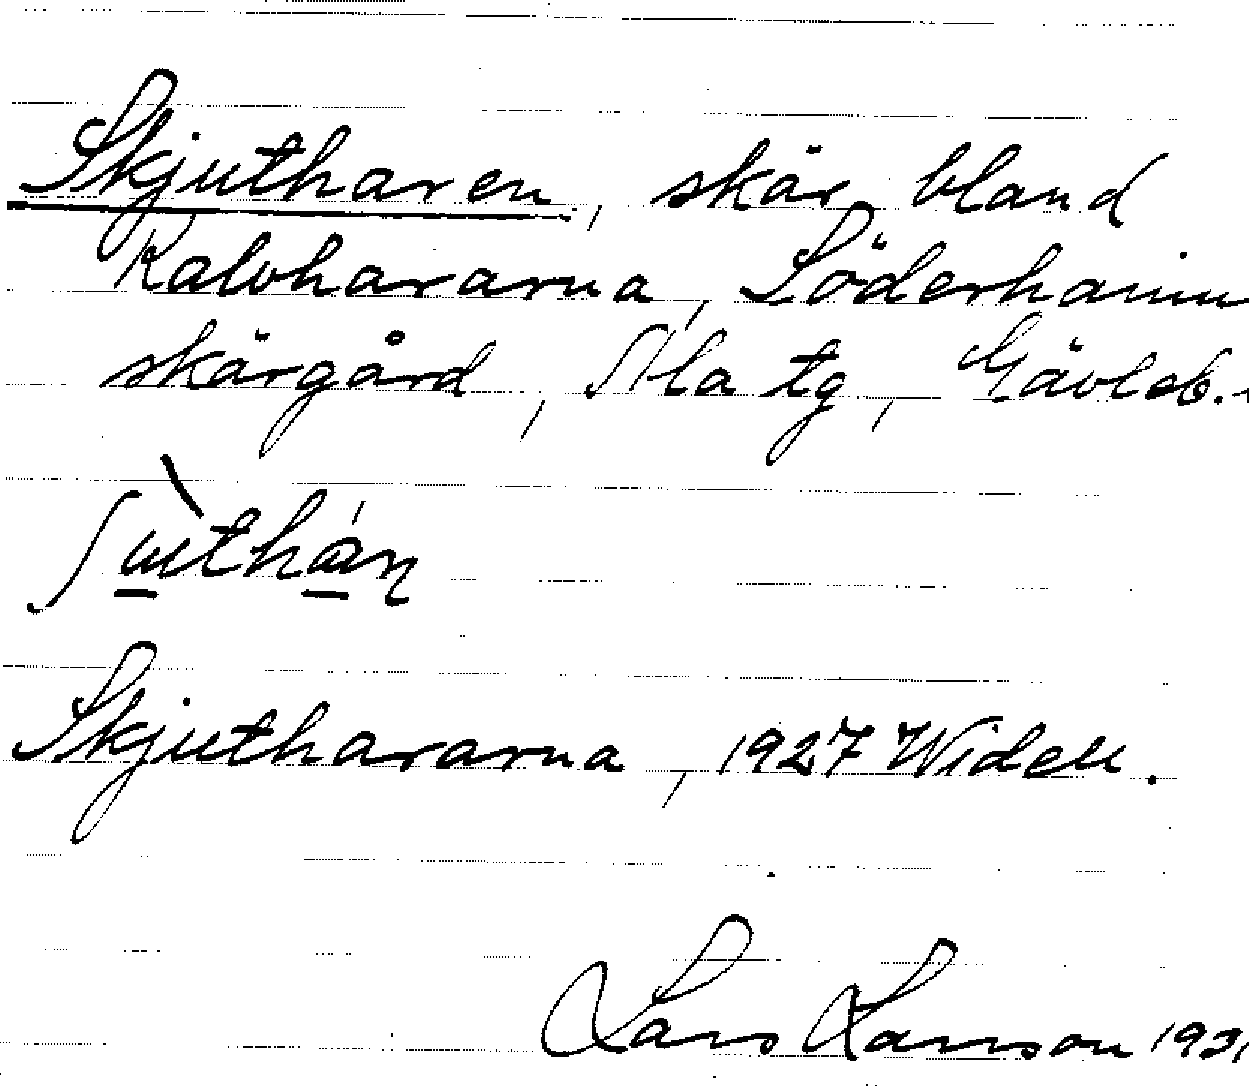 Skjutharen, skär bland
Kalvhararna, Söderhamn
skärgård, Ala tg, Gävleb.
ʃùthán
Skjuthararna, 1927 Widell.
Lars Larsson 1931